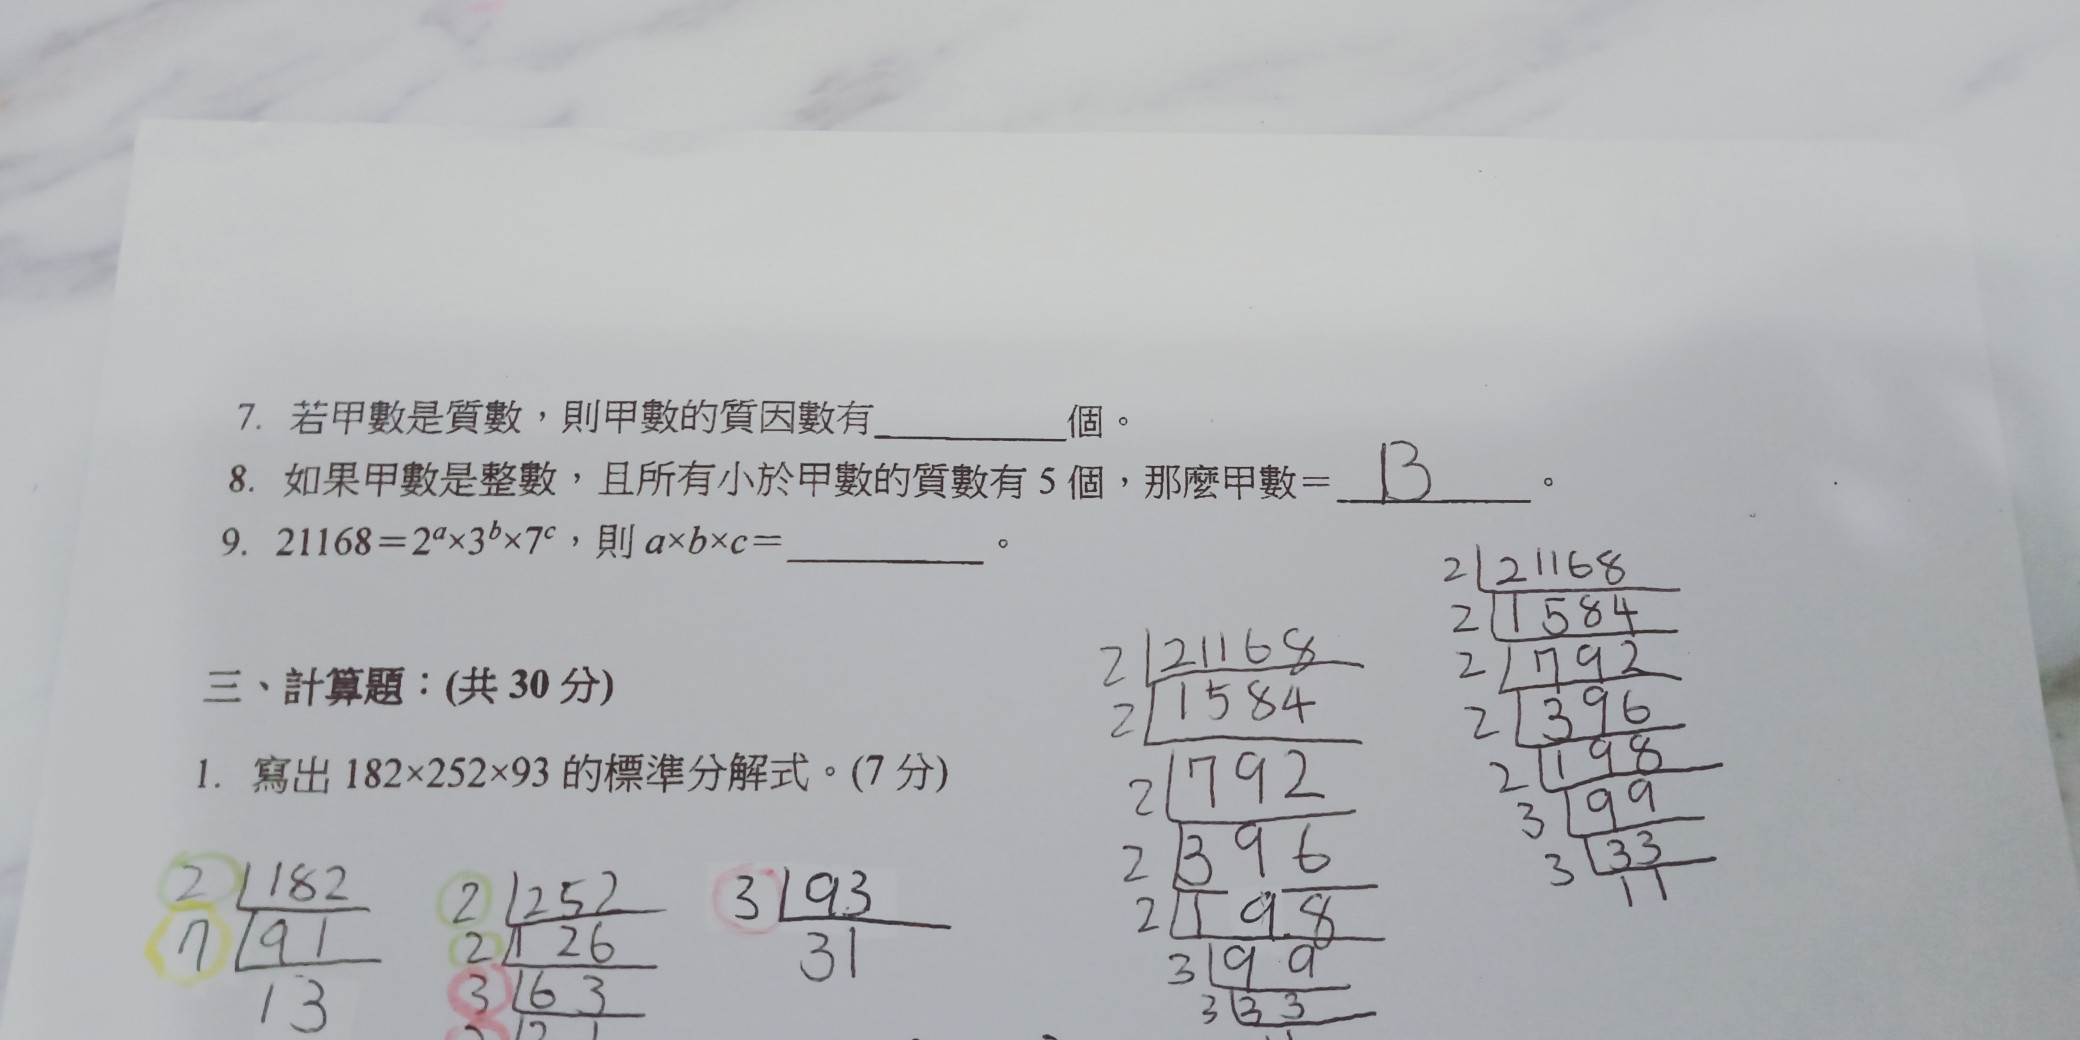 7. 若甲數是質數，則甲數的質因數有________個。
8. 如果甲數是整數，且所有小於甲數的質數有 5 個，那麼甲數＝ 13 。
9. 21168＝2ᵃ×3ᵇ×7ᶜ，則 a×b×c＝________。
三、計算題：(共 30 分)
1. 寫出 182×252×93 的標準分解式。(7 分)
2 182
7 91
13
2 252
2 126
3 63
3 93
31
2 21168
2 1584
2 792
2 396
2 198
3 99
3 33
2 21168
2 1584
2 792
2 396
2 198
3 99
3 33
11